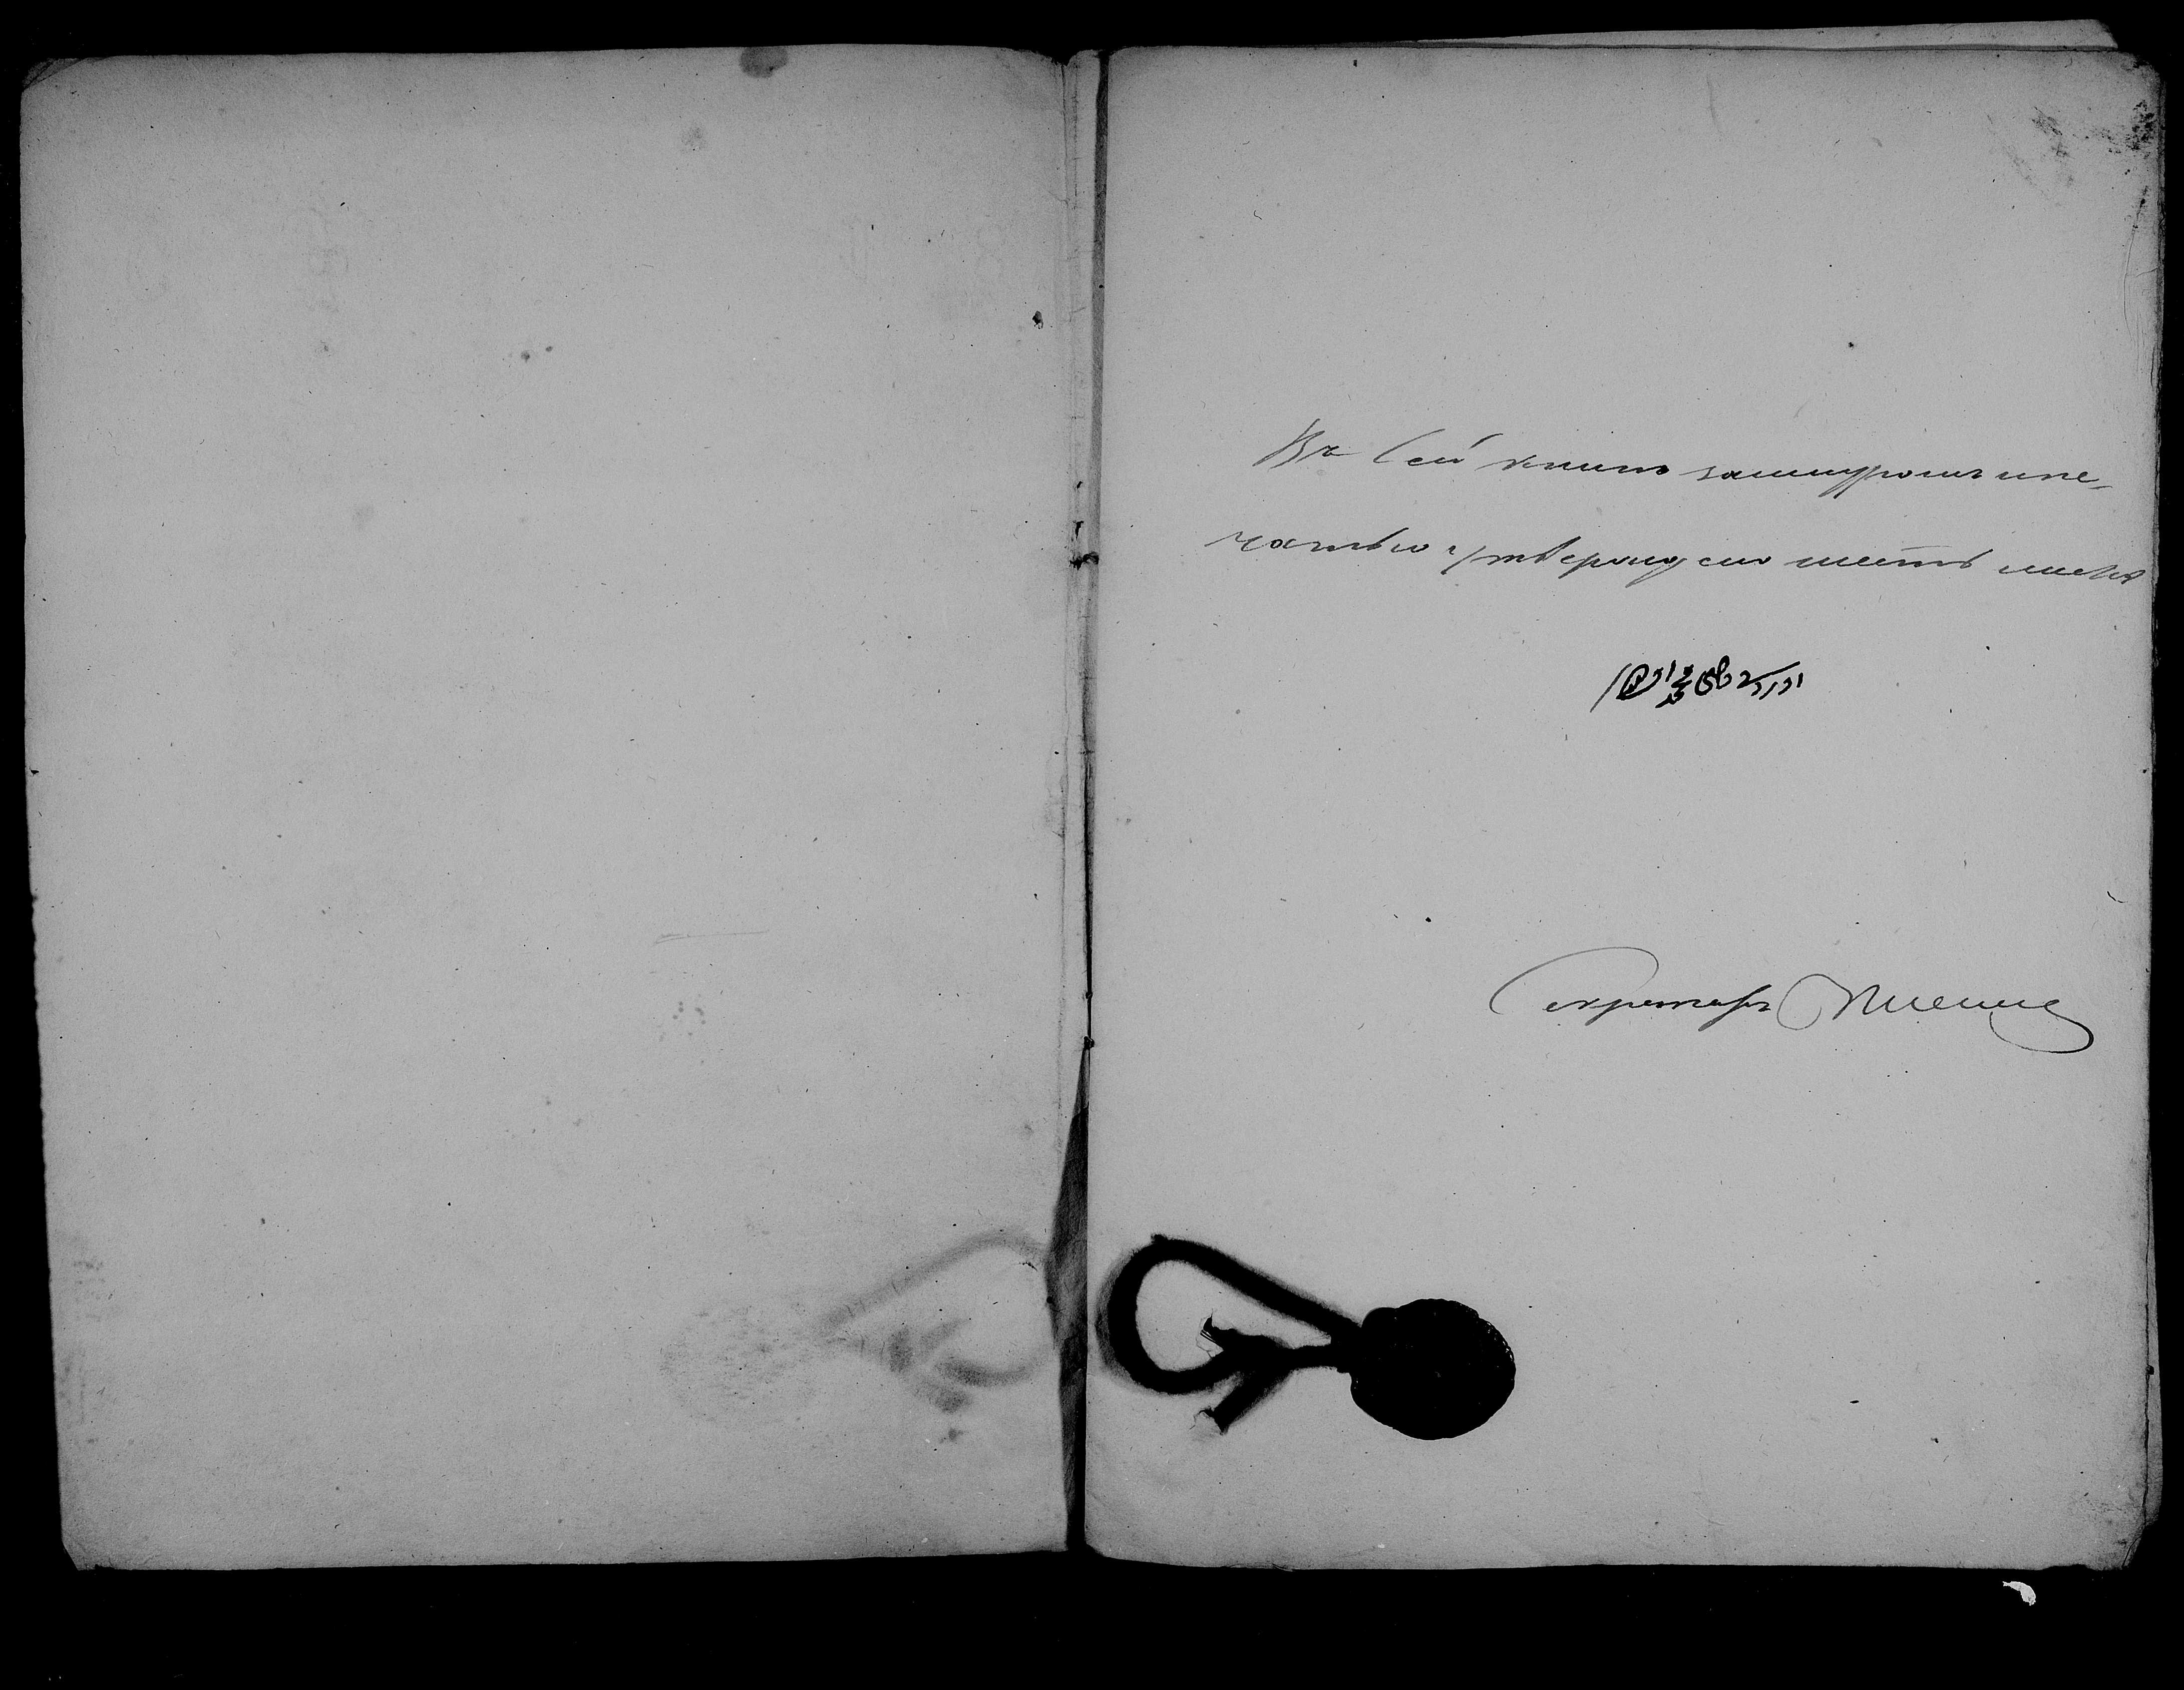 Въ сей книгѣ за шнуромъ и пе-
чатью утверждено шесть листов
Секретарь